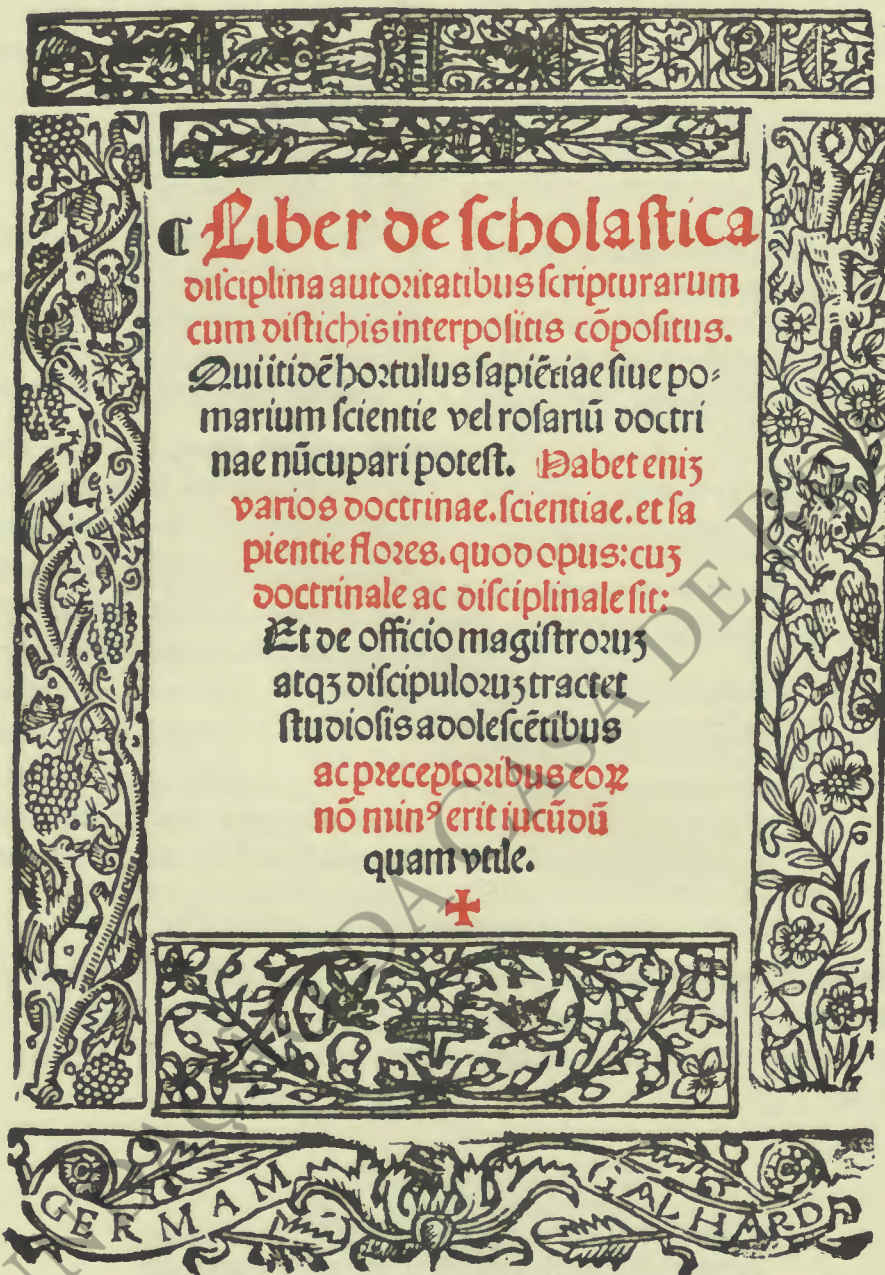 ¶ Liber de ſcholaſtica
diſciplina autoꝛitatibus ſcripturarum
cum diſtichis interpoſitis cõpoſitus.
Qui itidẽ hoꝛtulus ſapiẽtiae ſiue po⸗
marium ſcientie vel roſariũ doctri
nae nũcupari poteſt. Habet eniꝫ
varios doctrinae. ſcientiae. et ſa
pientie floꝛes. quod opus: cuꝫ
doctrinale ac diſciplinale ſit:
Et de officio magiſtroꝛuꝫ
atqꝫ diſcipuloꝛuꝫ tractet
ſtudioſis adoleſcẽtibus
ac pꝛeceptoꝛibus eoꝝ
nõ minꝰ erit iucũdũ
quam vtile.
✠
GERMAM GALHARDE
FUNDAÇÃO DA CASA DE BRA